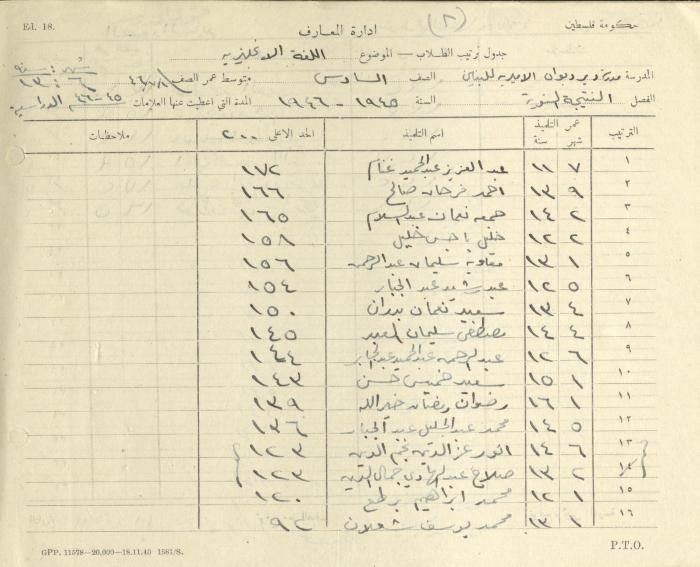 Ed. 18.
(٢)
حكومة فلسطين
ادارة المعارف
جدول ترتيب الطلاب — الموضوع اللغة الانجليزيه
المدرسة الاميريه للبنين الصف السادس متوسط عمر الصف
الفصل النتيجة السنوية السنة ١٩٤٥ - ١٩٤٦ المدة التي اعطيت عنها العلامات ٤٥-٤٦ الدراسية
الترتيب عمر التلميذ شهر سنة اسم التلميذ الحد الاعلى ٢٠٠ ملاحظات
١ ٧ ١١ عبد العزيز عبد الحميد غنام ١٧٢
٢ ٩ ١٣ احمد فرحان صالح ١٦٦
٣ ٢ ١٤ جمعه نعمان عبد السلام ١٦٥
٤ ٢ ١٢ خليل خليل ١٥٨
٥ ١ ١٣ معاوية سليمان عبد الرحمن ١٥٦
٦ ٥ ١٢ عبد رشيد عبد الجبار ١٥٤
٧ ٤ ١٣ سعيد نعمان بدران ١٥٠
٨ ٤ ١٤ مصطفى سليمان ١٤٥
٩ ٦ ١٢ عبد الرحمن عبد الحميد عبد الجابر ١٤٤
١٠ ١ ١٥ سعيد خميس حسن ١٤٣
١١ ١ ١٦ رضوان رمضان خير الله ١٣٩
١٢ ٥ ١٤ محمد عبد الجليل عبد الجبار ١٣٦
١٣ ٦ ١٤ انور عز الدين نجم الدين ١٢٣
١٤ ٢ ١٣ صلاح عبد الهادي جمال الدين ١٢٣
١٥ ١ ١٢ محمد ابراهيم ١٢٠
١٦ ١ ١٣ محمد يوسف شعلان ٩٢
GPP. 11578—20,000—18.11.40 1581/S.
P.T.O.